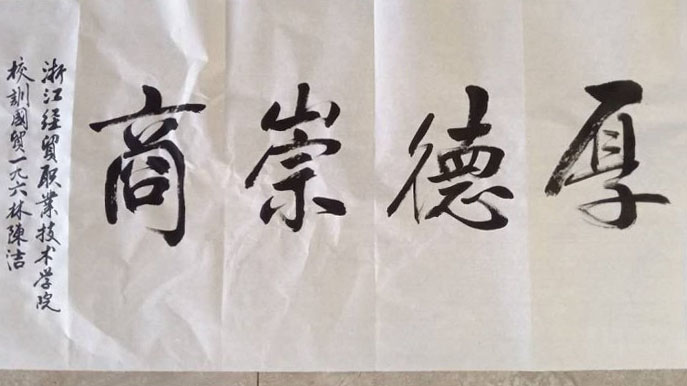 厚德崇商
浙江经贸职业技术学院
校訓國贸一九六林陳洁